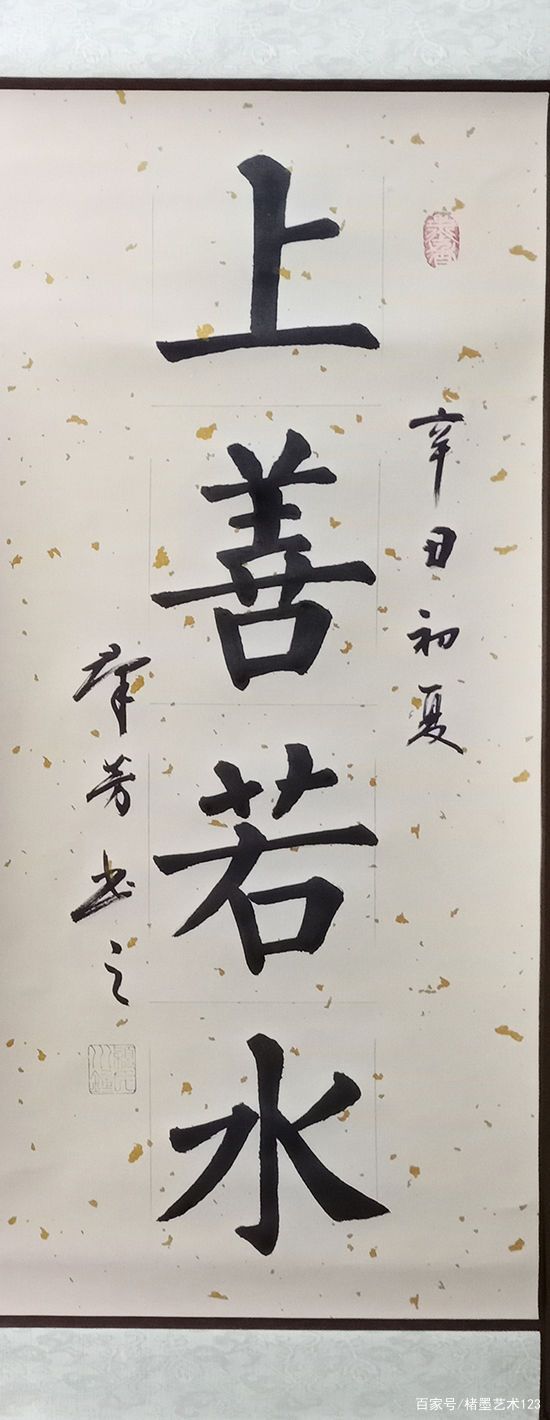 辛丑初夏
上善若水
群芳书之
百家号/楮墨艺术123